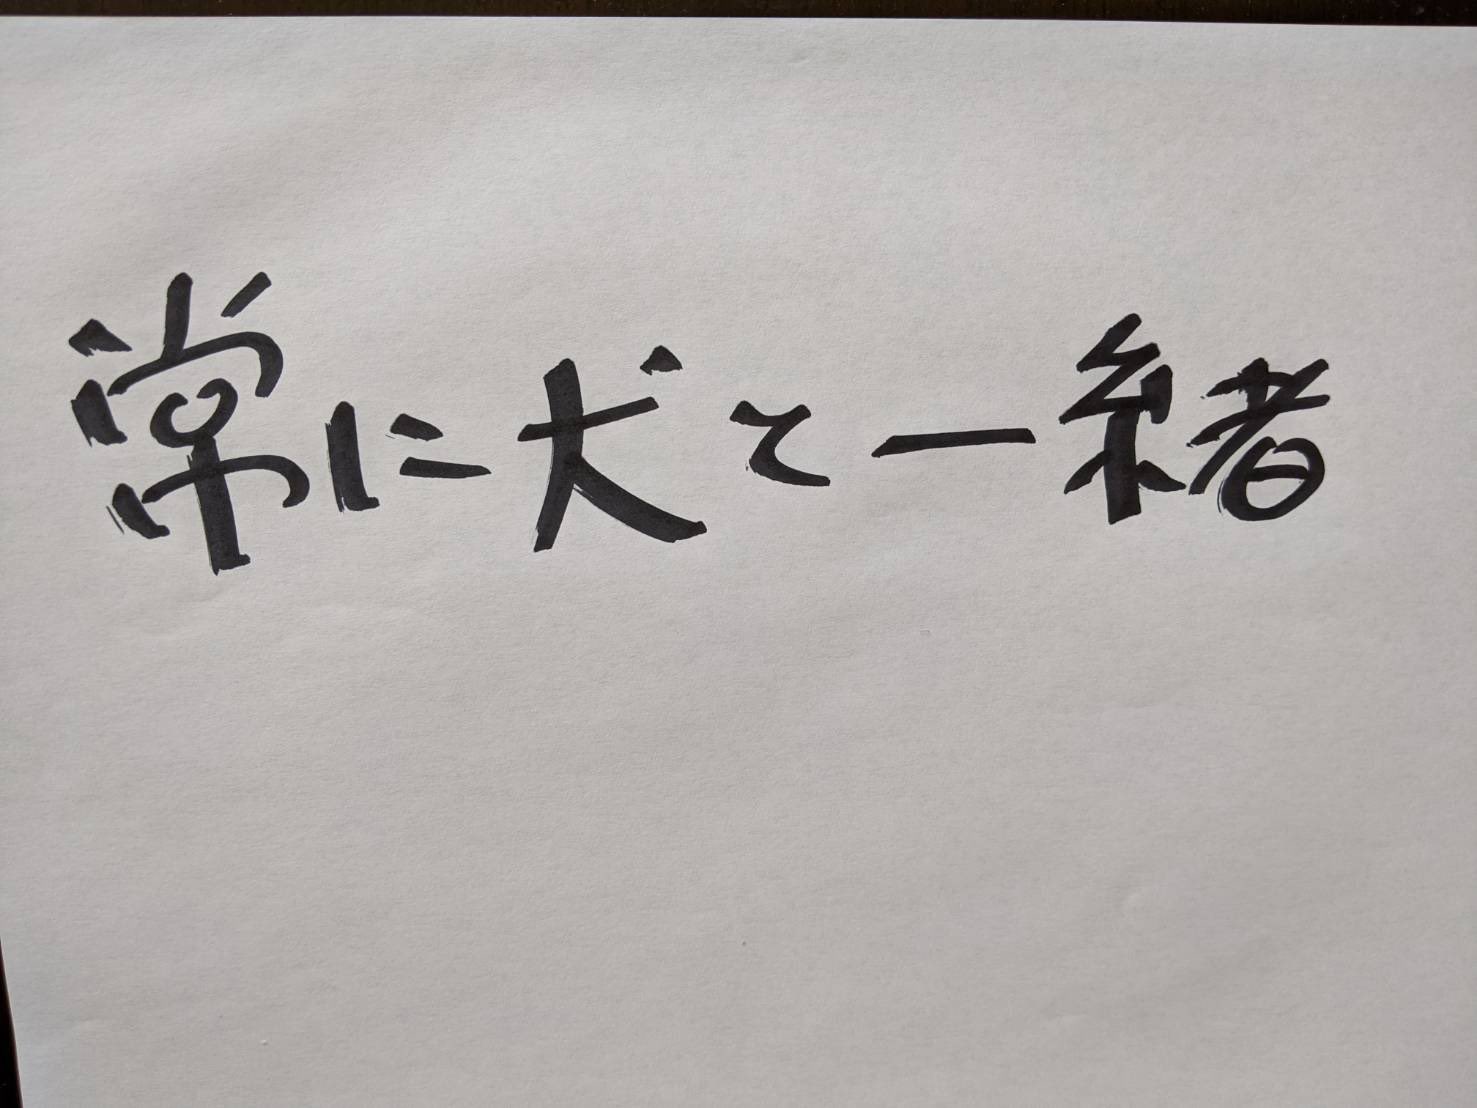 常に犬と一緒